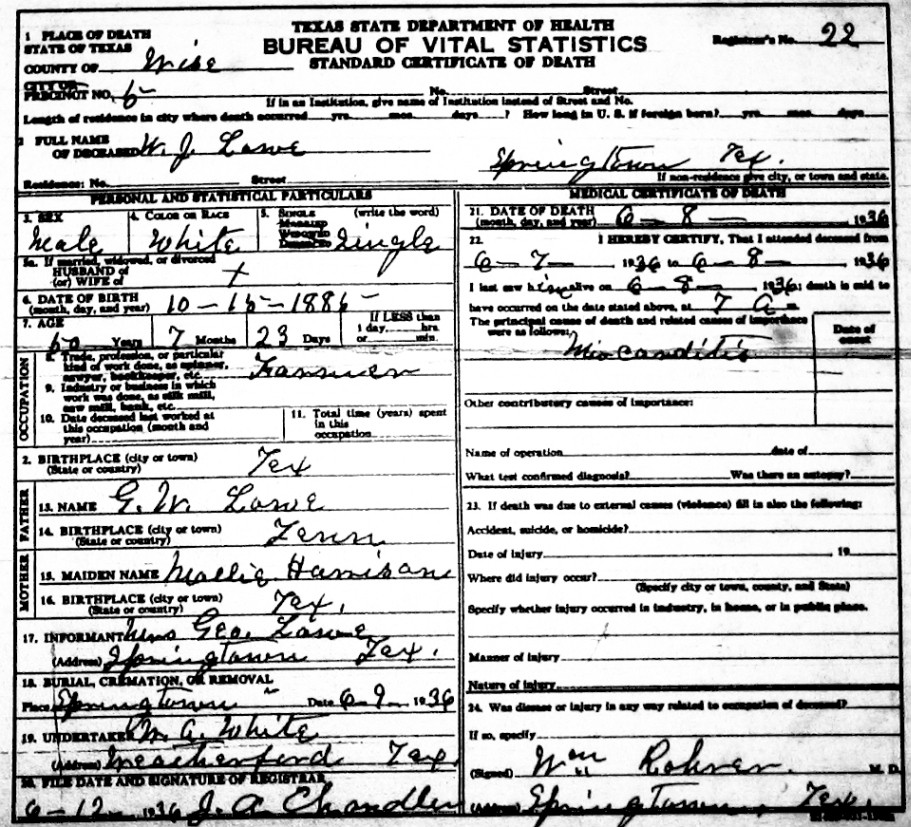 TEXAS STATE DEPARTMENT OF HEALTH
BUREAU OF VITAL STATISTICS
STANDARD CERTIFICATE OF DEATH
Registrar's No. 22
1 PLACE OF DEATH
STATE OF TEXAS
COUNTY OF Wise
CITY OR
PRECINCT NO. 5 No. Street
If in an Institution, give name of Institution instead of Street and No.
Length of residence in city where death occurred yrs. mos. days? How long in U. S. if foreign born? yrs. mos. days
2 FULL NAME
OF DECEASED W. J. Lowe
Springtown Tex.
Residence: No. Street If non-residence give city, or town and state.
PERSONAL AND STATISTICAL PARTICULARS
3. SEX
Male
4. COLOR OR RACE
White
5. SINGLE (write the word)
MARRIED
WIDOWED
DIVORCED
Single
5a. If married, widowed, or divorced
HUSBAND of
(or) WIFE of x
6. DATE OF BIRTH
(month, day, and year) 10-15-1885
7. AGE
50 Years 7 Months 23 Days
If LESS than
1 day, hrs.
or min.
OCCUPATION
8. Trade, profession, or particular
kind of work done, as spinner,
sawyer, bookkeeper, etc. Farmer
9. Industry or business in which
work was done, as silk mill,
saw mill, bank, etc.
10. Date deceased last worked at
this occupation (month and
year)
11. Total time (years) spent
in this
occupation
2. BIRTHPLACE (city or town)
(State or country) Tex
FATHER
13. NAME G. W. Lowe
14. BIRTHPLACE (city or town)
(State or country) Tenn
MOTHER
15. MAIDEN NAME Mollie Harrison
16. BIRTHPLACE (city or town)
(State or country) Tex.
17. INFORMANT Mrs Geo. Lowe
(Address) Springtown Tex.
18. BURIAL, CREMATION, OR REMOVAL
Place Springtown Date 6-9- 1936
19. UNDERTAKER W. A. White
(Address) Weatherford Tex.
20. FILE DATE AND SIGNATURE OF REGISTRAR
6-12- 1936 J. A. Chandler
MEDICAL CERTIFICATE OF DEATH
21. DATE OF DEATH
(month, day, and year) 6-8- 1936
22. I HEREBY CERTIFY, That I attended deceased from
6-7- 1936 to 6-8- 1936
I last saw him alive on 6-8- 1936; death is said to
have occurred on the date stated above, at 7 a-
The principal cause of death and related causes of importance
were as follows:
Date of
onset
Miocarditis
Other contributory causes of importance:
Name of operation date of
What test confirmed diagnosis? Was there an autopsy?
23. If death was due to external causes (violence) fill in also the following:
Accident, suicide, or homicide?
Date of injury 19
Where did injury occur?
(Specify city or town, county, and State)
Specify whether injury occurred in industry, in home, or in public place.
Manner of injury
Nature of injury
24. Was disease or injury in any way related to occupation of deceased?
If so, specify
(Signed) Wm Rohrer M. D.
(Address) Springtown, Tex.